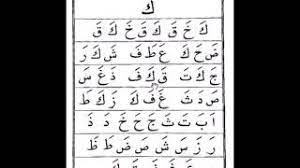 ك
كَ خَ قَ كَ قَ خَ قَ كَ
ضَحَكَ عَطَفَ شَكَرَ
جَكَتَ قَكَفَ دَغَسَ
صَدَثَ غَفَكَ زَكَطَ
اَ بَ تَ ثَ جَ حَ خَ دَ ذَ
رَ زَ سَ شَ صَ ضَ طَ ظَ